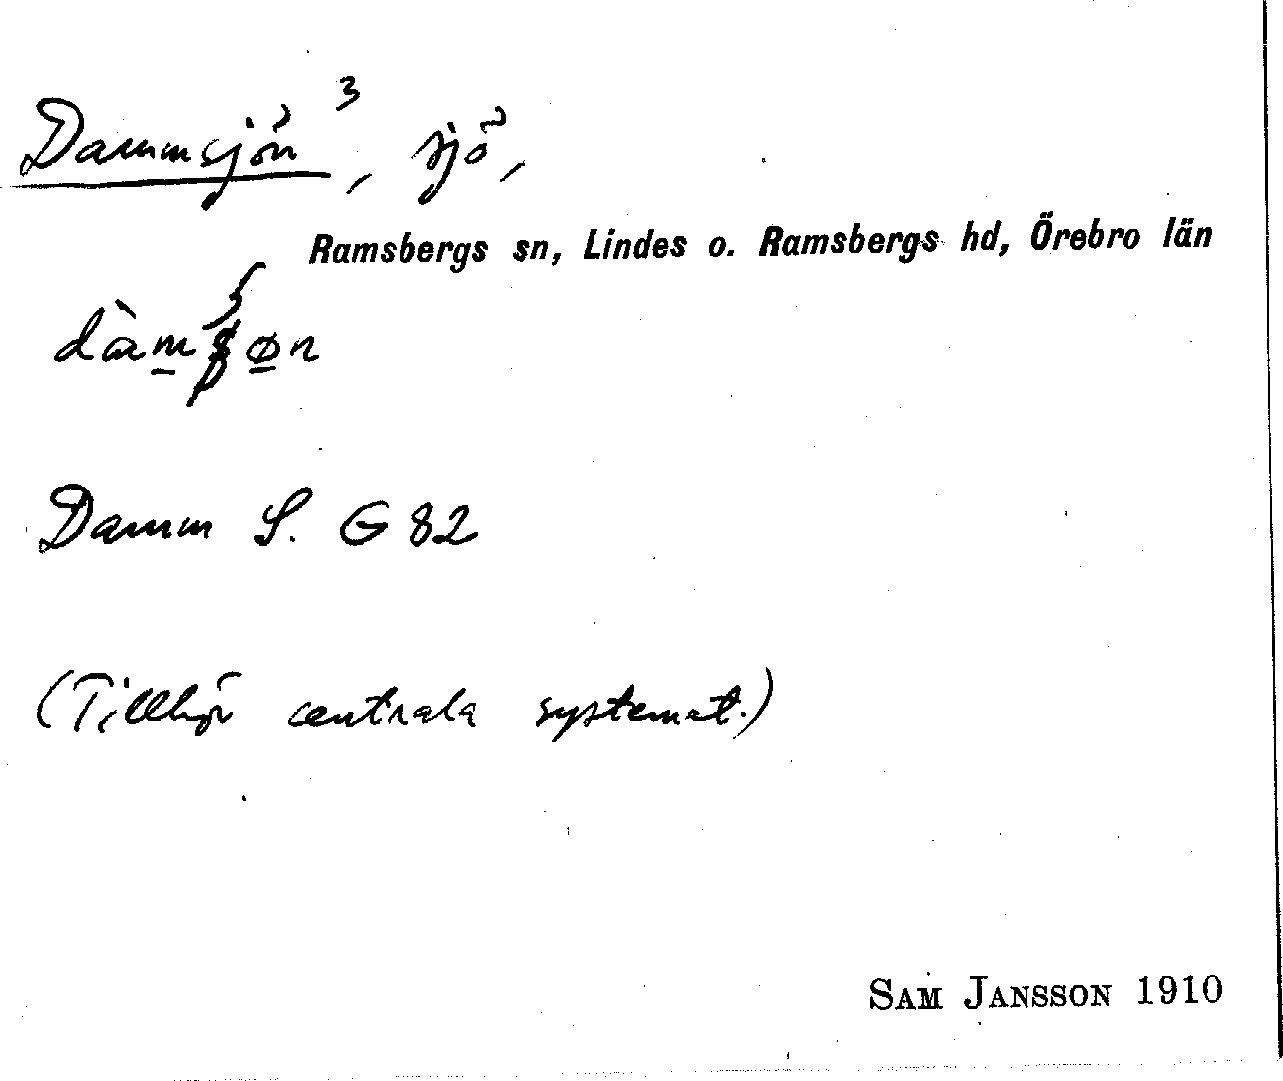 Dammsjön ³, sjö,
Ramsbergs sn, Lindes o. Ramsbergs hd, Örebro län
Damm S. G 82
(Tillhör centrala systemet.)
SAM JANSSON 1910